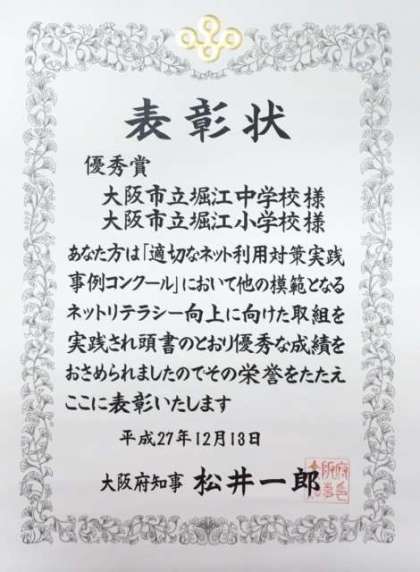 表彰状
優秀賞
大阪市立堀江中学校様
大阪市立堀江小学校様
あなた方は「適切なネット利用対策実践
事例コンクール」において他の模範となる
ネットリテラシー向上に向けた取組を
実践され頭書のとおり優秀な成績を
おさめられましたのでその栄誉をたたえ
ここに表彰いたします
平成27年12月13日
大阪府知事 松井一郎